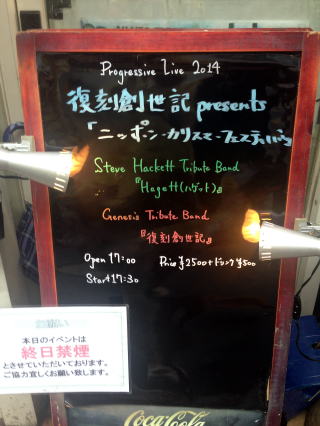 Progressive Live 2014
復刻創世記 presents
「ニッポン・カリスマ・フェスティバル
Steve Hackett Tribute Band
『Hagett(ハゲット)』
Genesis Tribute Band
『復刻創世記』
Open 17:00 Price ¥2500+ドリンク¥500
Start 17:30
本日のイベントは
終日禁煙
とさせていただいております。
ご協力宜しくお願い致します。
Coca-Cola